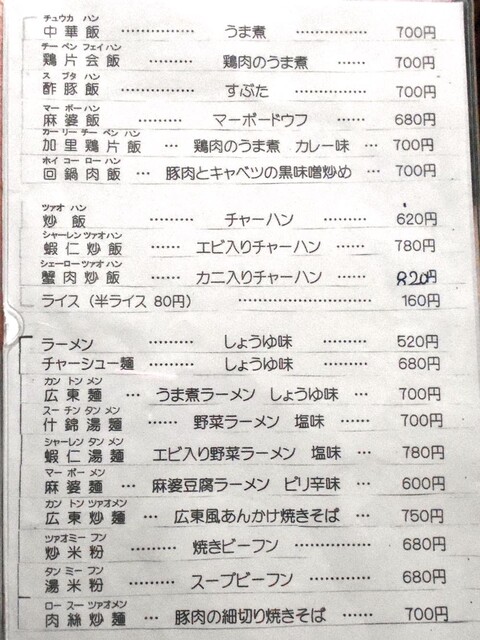 チュウカ ハン
中華飯 …………… うま煮 ………… 700円
チー ペン フェイ ハン
鶏片会飯 ……… 鶏肉のうま煮 …… 700円
ス ブタ ハン
酢豚飯 ………… すぶた ………… 700円
マー ボー ハン
麻婆飯 ………… マーボードウフ …… 680円
カー リー チー ペン ハン
加里鶏片飯 … 鶏肉のうま煮 カレー味 … 700円
ホイ コー ロー ハン
回鍋肉飯 … 豚肉とキャベツの黒味噌炒め … 700円
ツァオ ハン
炒飯 ……… チャーハン ……… 620円
シャーレン ツァオ ハン
蝦仁炒飯 …… エビ入りチャーハン …… 780円
シェーロー ツァオ ハン
蟹肉炒飯 …… カニ入りチャーハン …… 820円
ライス (半ライス 80円) ……………… 160円
ラーメン ……… しょうゆ味 ……… 520円
チャーシュー麺 ……… しょうゆ味 ……… 680円
カン トン メン
広東麺 … うま煮ラーメン しょうゆ味 … 700円
スー チン タン メン
什錦湯麺 …… 野菜ラーメン 塩味 …… 700円
シャーレン タン メン
蝦仁湯麺 … エビ入り野菜ラーメン 塩味 … 780円
マー ボー メン
麻婆麺 … 麻婆豆腐ラーメン ピリ辛味 … 600円
カン トン ツァオメン
広東炒麺 … 広東風あんかけ焼きそば … 750円
ツァオミー フン
炒米粉 …… 焼きビーフン ……… 680円
タン ミー フン
湯米粉 …… スープビーフン ……… 680円
ロー スー ツァオメン
肉絲炒麺 … 豚肉の細切り焼きそば …… 700円